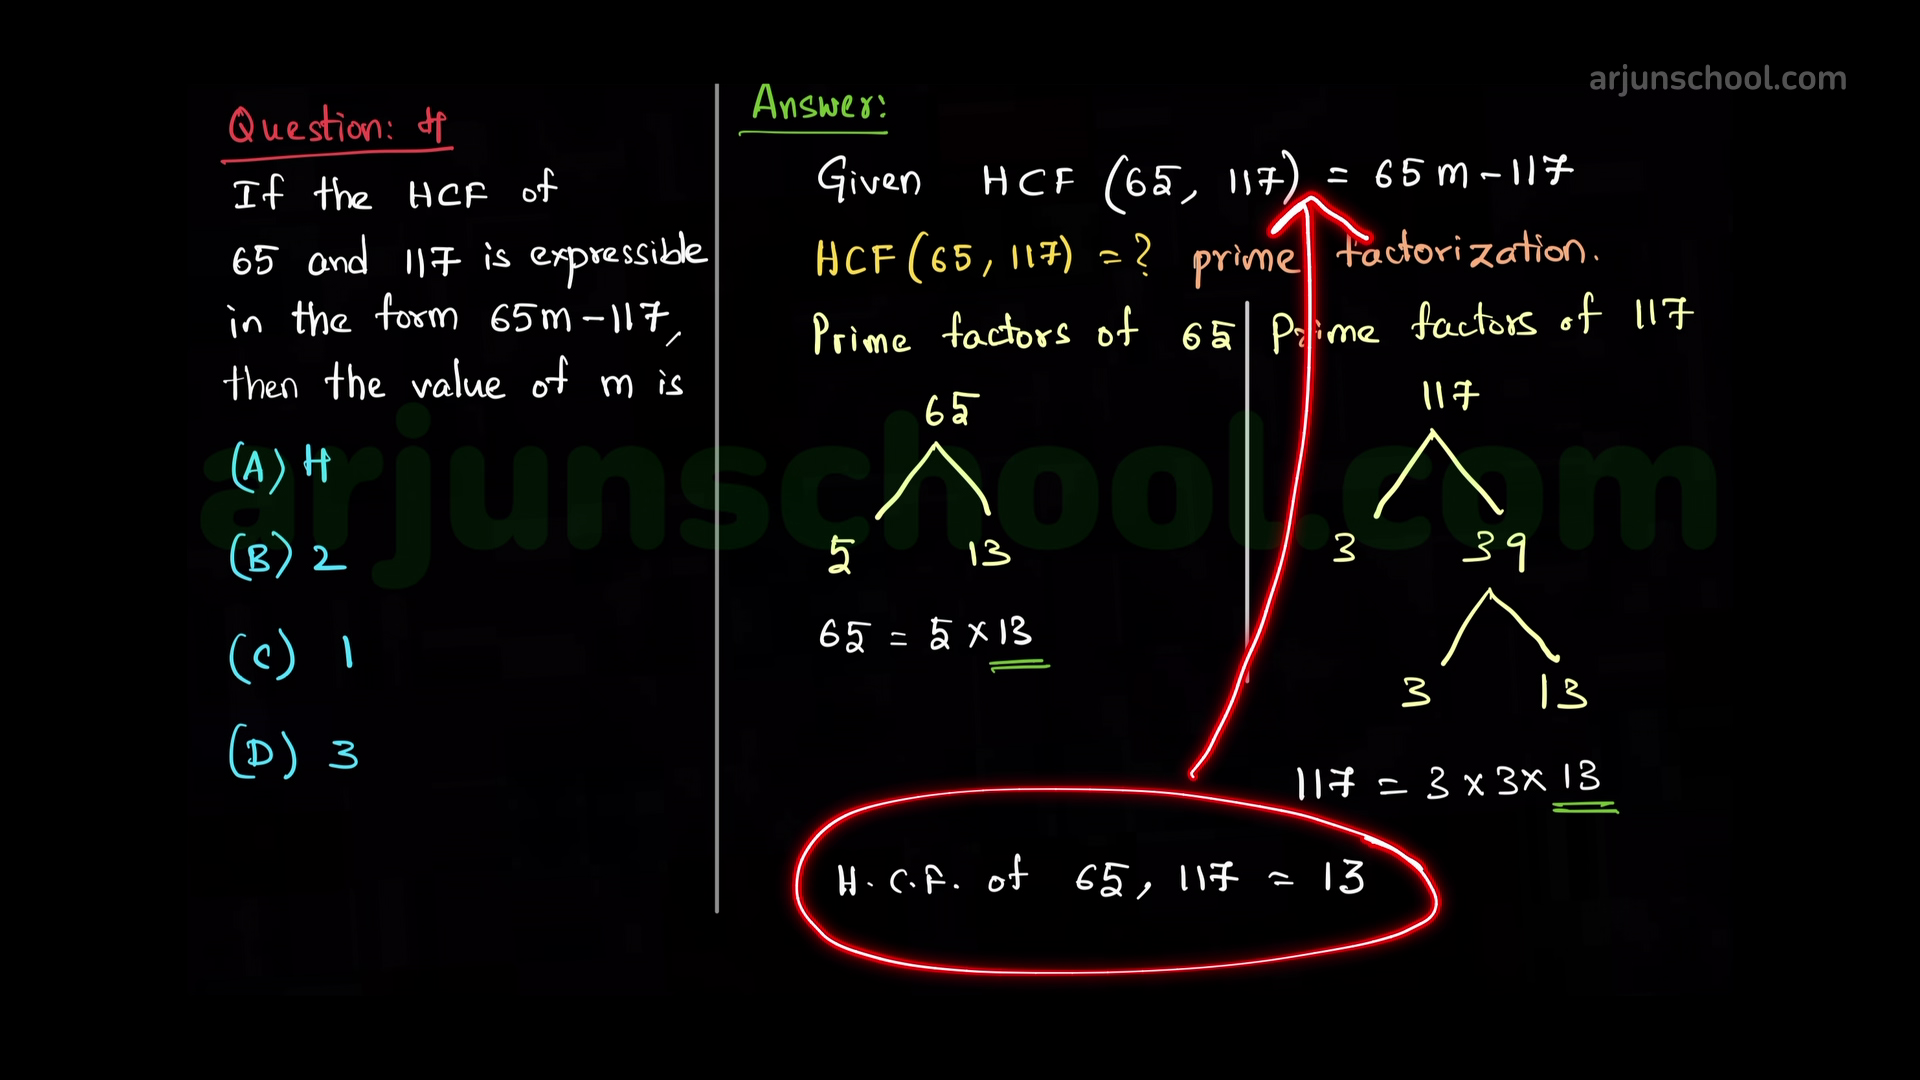 arjunschool.com
Question: 4
If the HCF of
65 and 117 is expressible
in the form 65m-117,
then the value of m is
(A) 4
(B) 2
(C) 1
(D) 3
Answer:
Given HCF (65, 117) = 65m-117
HCF(65, 117) = ? prime factorization.
Prime factors of 65
65
5 13
65 = 5 × 13
Prime factors of 117
117
3 39
3 13
117 = 3 × 3 × 13
H.C.F. of 65, 117 = 13
arjunschool.com